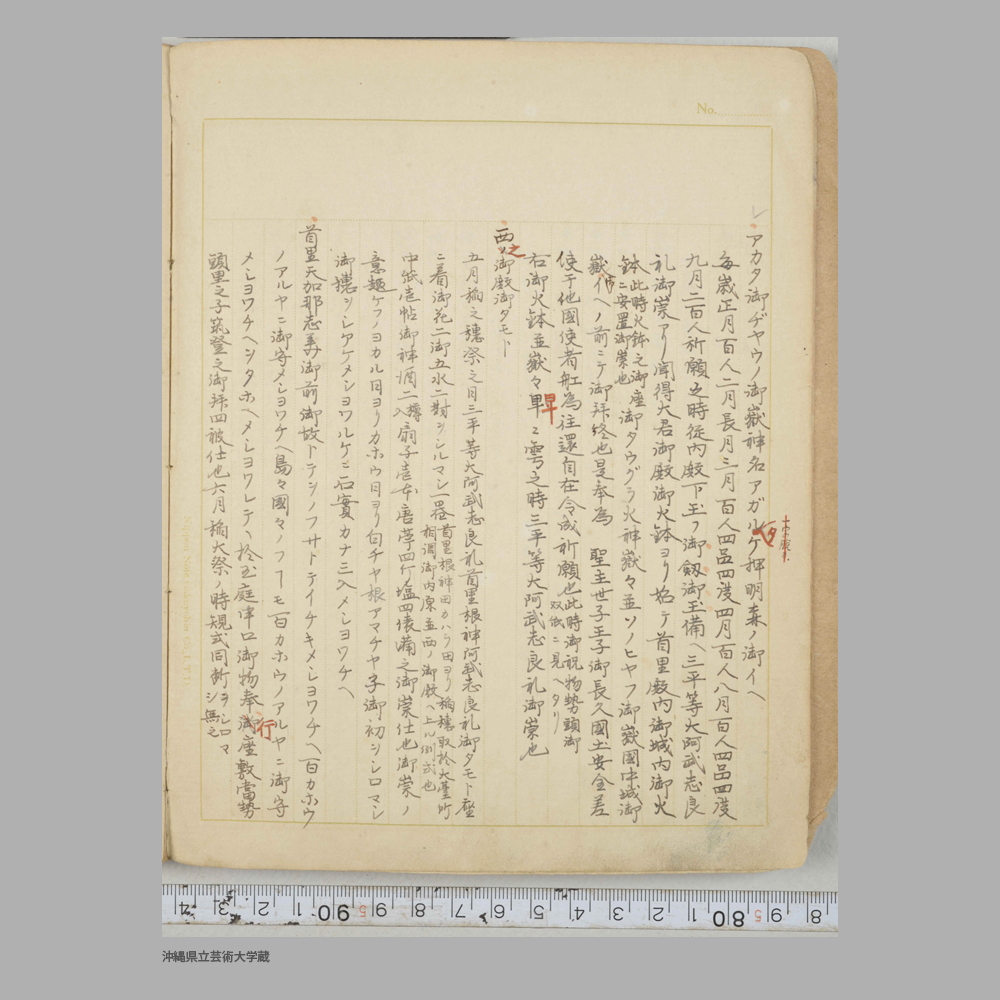 No.
アカタ御ヂヤウノ御嶽神名アガルケ押明森ノ御イベ
毎歳正月百人二月長月三月百人四品四度四月百人八月百人四品四度
九月二百人祈願之時従内殿下玉フ御劔御玉備ヘ三平等大阿武志良
礼御崇アリ聞得大君御殿御火鉢ヨリ始テ首里殿内御城内御火
鉢此時火鉢之御座ニ安置御崇也御タウグラ火神嶽々並ソノヒヤブ御嶽國中城御
嶽伊ヘノ前ニテ御拝終也是奉為 聖主世子王子御長久國土安全差
使于他國使者舡為往還自在令成祈願也此時御祝物勢頭御双紙ニ見ヘタリ
右御火鉢並嶽々旱ニ雩之時三平等大阿武志良礼御崇也
西之御殿御タモト
五月稲之穂祭之日三平等大阿武志良礼首里根神阿武志良礼御タモト座
ニ着御花二御五水二對ヲシルマシ一器首里根神田カハラ田ヨリ稲穂取於大臺所相調御内原並西ノ御殿ヘ上ル例式也
中紙壱帖御神酒二樽入扇子壱本唐苧四斤塩四俵備之御崇仕也御崇ノ
意趣ケフノヨカル日ヨリカホウ日ヨリ白チヤ根アマチヤ子御初シシロマシ
御穂シシアケメシヨワルケニ石實カナ三入メシヨワチヘ
首里天加那志美御前御故トテシノフサトテイチキメシヨワチヘ百カホウ
ノアルヤニ御守メシヨワケヘ島々國々ノフーモ百カホウノアルヤニ御守
メシヨワチヘシタホヘメシヨワレテヽ於玉庭津口御物奉行御座敷當勢
頭里之子筑登之御拝四被仕也六月稲大祭ノ時規式同断ヲシロマシ無之
沖縄県立芸術大学蔵